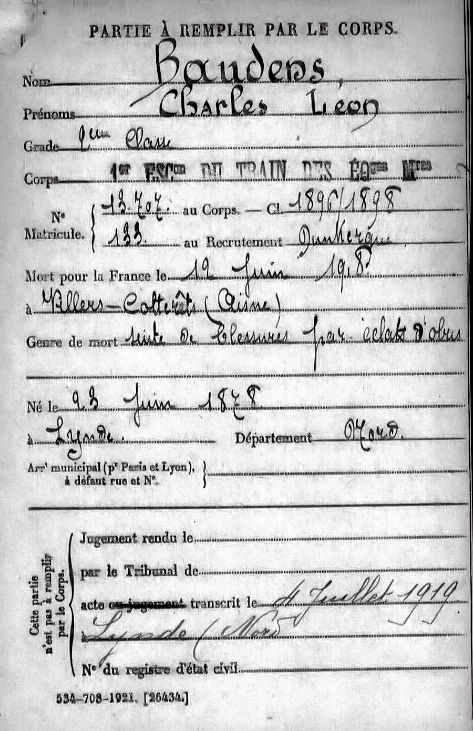 PARTIE À REMPLIR PAR LE CORPS.
Nom Baudens,
Prénoms Charles Léon
Grade 2eme Classe
Corps 1er ESCon DU TRAIN DES ÉQges Mres
N° Matricule. { 13.707. au Corps. — Cl. 1896/1898
133. au Recrutement Dunkerque
Mort pour la France le 12 Juin 1918.
à Villers-Cotterêts (Aisne)
Genre de mort suite de blessures par éclats d'obus
Né le 23 Juin 1878
à Lynde. Département Nord.
Arrt municipal (pr Paris et Lyon), à défaut rue et N°. }
Cette partie n'est pas à remplir par le Corps.
Jugement rendu le
par le Tribunal de
acte ou jugement transcrit le 4 Juillet 1919
à Lynde (Nord)
N° du registre d'état civil
534-708-1921. [26434.]